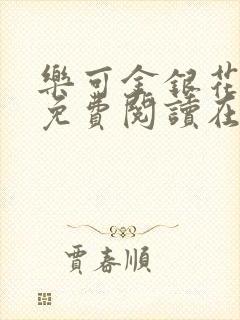 樂可金銀花
免費閱讀在
賈春順